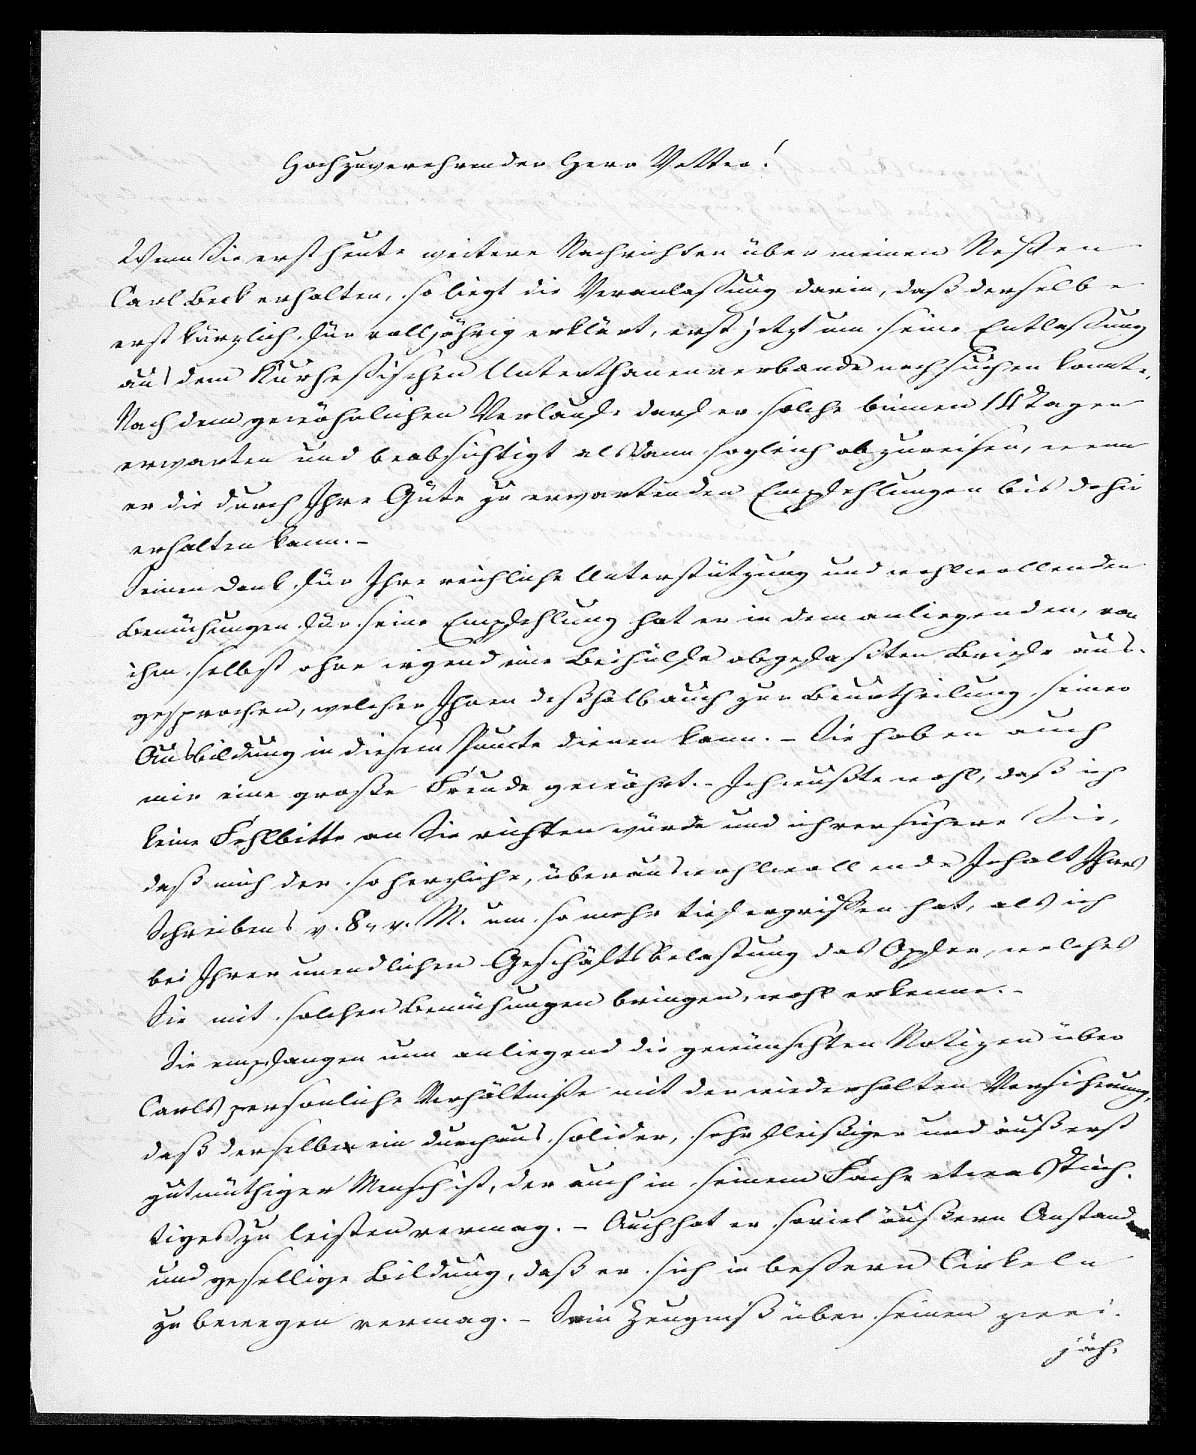 Hochzuverehrender Herr Vetter!
Wenn Sie erst heute weitere Nachrichten über meinen Neffen
Carl Beck erhalten, so liegt die Veranlaßung darin, daß derselbe
erst kürzlich für volljährig erklärt, erst jetzt um seine Entlaßung
aus dem Kurheßischen Unterthanenverbande nachsuchen konnte.
Nach dem gewöhnlichen Verlaufe darf er solche binnen 14 Tagen
erwarten und beabsichtigt alsdann sogleich abzureisen, wenn
er die durch Ihre Güte zu erwartenden Empfehlungen bis dahin
erhalten kann. –
Seinen Dank für Ihre reichliche Unterstützung und wohlwollenden
Bemühungen für seine Empfehlung hat er in dem anliegenden, von
ihm selbst ohne irgend eine Beihülfe abgefaßten Briefe aus-
gesprochen, welcher Ihnen deßhalb auch zur Beurtheilung seiner
Ausbildung in diesem Puncte dienen kann. – Sie haben auch
mir eine große Freude gewährt. – Ich wußte wohl, daß ich
keine Fehlbitte an Sie richten würde und ich versichere Sie,
daß mich der so herzliche, überaus wohlwollende Inhalt Ihres
Schreibens v. 8. v. M. um so mehr tief ergriffen hat, als ich
bei Ihrer unendlichen Geschäftsbelastung das Opfer, welches
Sie mit solchen Bemühungen bringen, wohl erkenne. –
Sie empfangen nun anliegend die gewünschten Notizen über
Carls persönliche Verhältniße mit der wiederholten Versicherung,
daß derselbe ein durchaus solider, sehr fleißiger und äußerst
gutmüthiger Mensch ist, der auch in seinem Fache etwas Tüch-
tiges zu leisten vermag. – Auch hat er soviel äußern Anstand
und gesellige Bildung, daß er sich in beßern Cirkeln
zu bewegen vermag. – Sein Zeugniß über seinen zwei-
jäh-